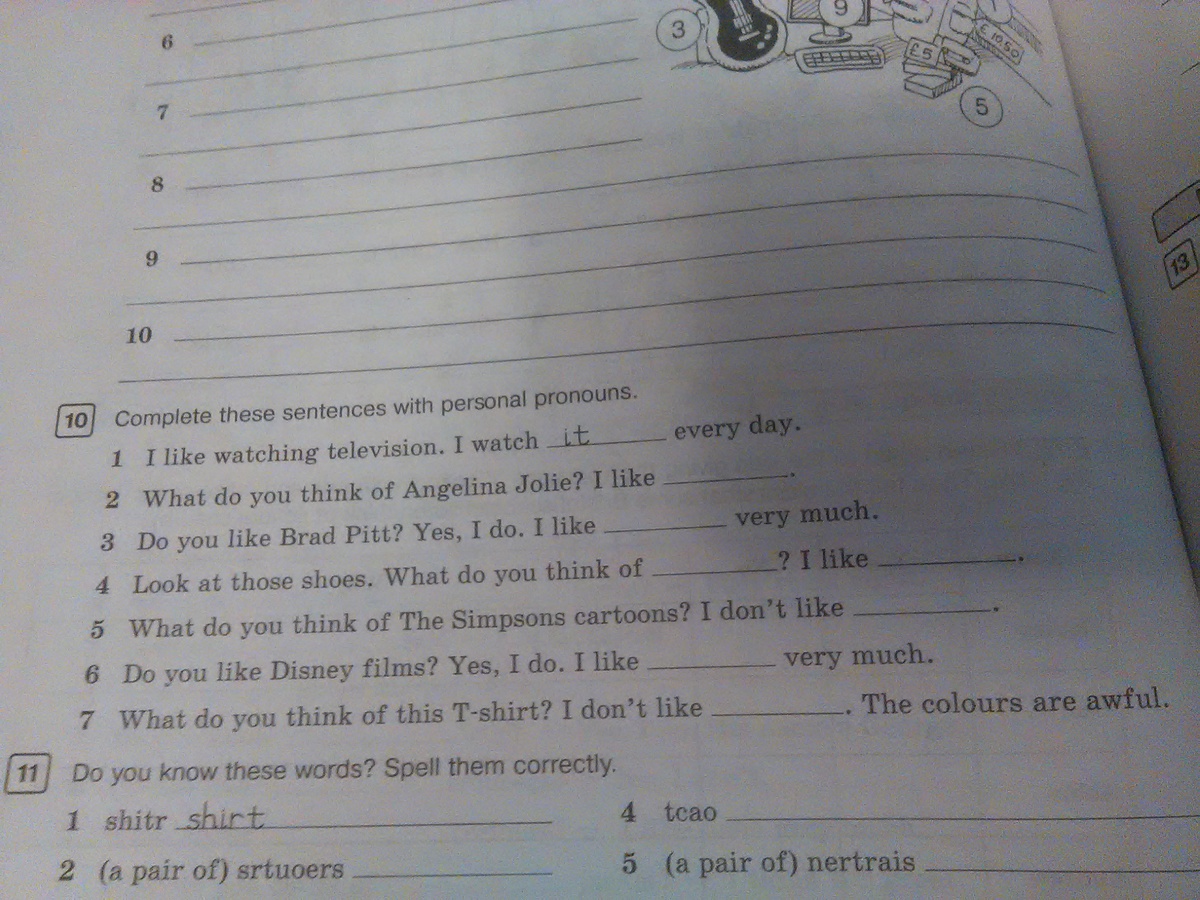 3
9
£5
£10.50
5
6
7
8
9
10
13
10 Complete these sentences with personal pronouns.
1 I like watching television. I watch it every day.
2 What do you think of Angelina Jolie? I like ________.
3 Do you like Brad Pitt? Yes, I do. I like ________ very much.
4 Look at those shoes. What do you think of ________? I like ________.
5 What do you think of The Simpsons cartoons? I don't like ________.
6 Do you like Disney films? Yes, I do. I like ________ very much.
7 What do you think of this T-shirt? I don't like ________. The colours are awful.
11 Do you know these words? Spell them correctly.
1 shitr shirt
4 tcao
2 (a pair of) srtuoers
5 (a pair of) nertrais